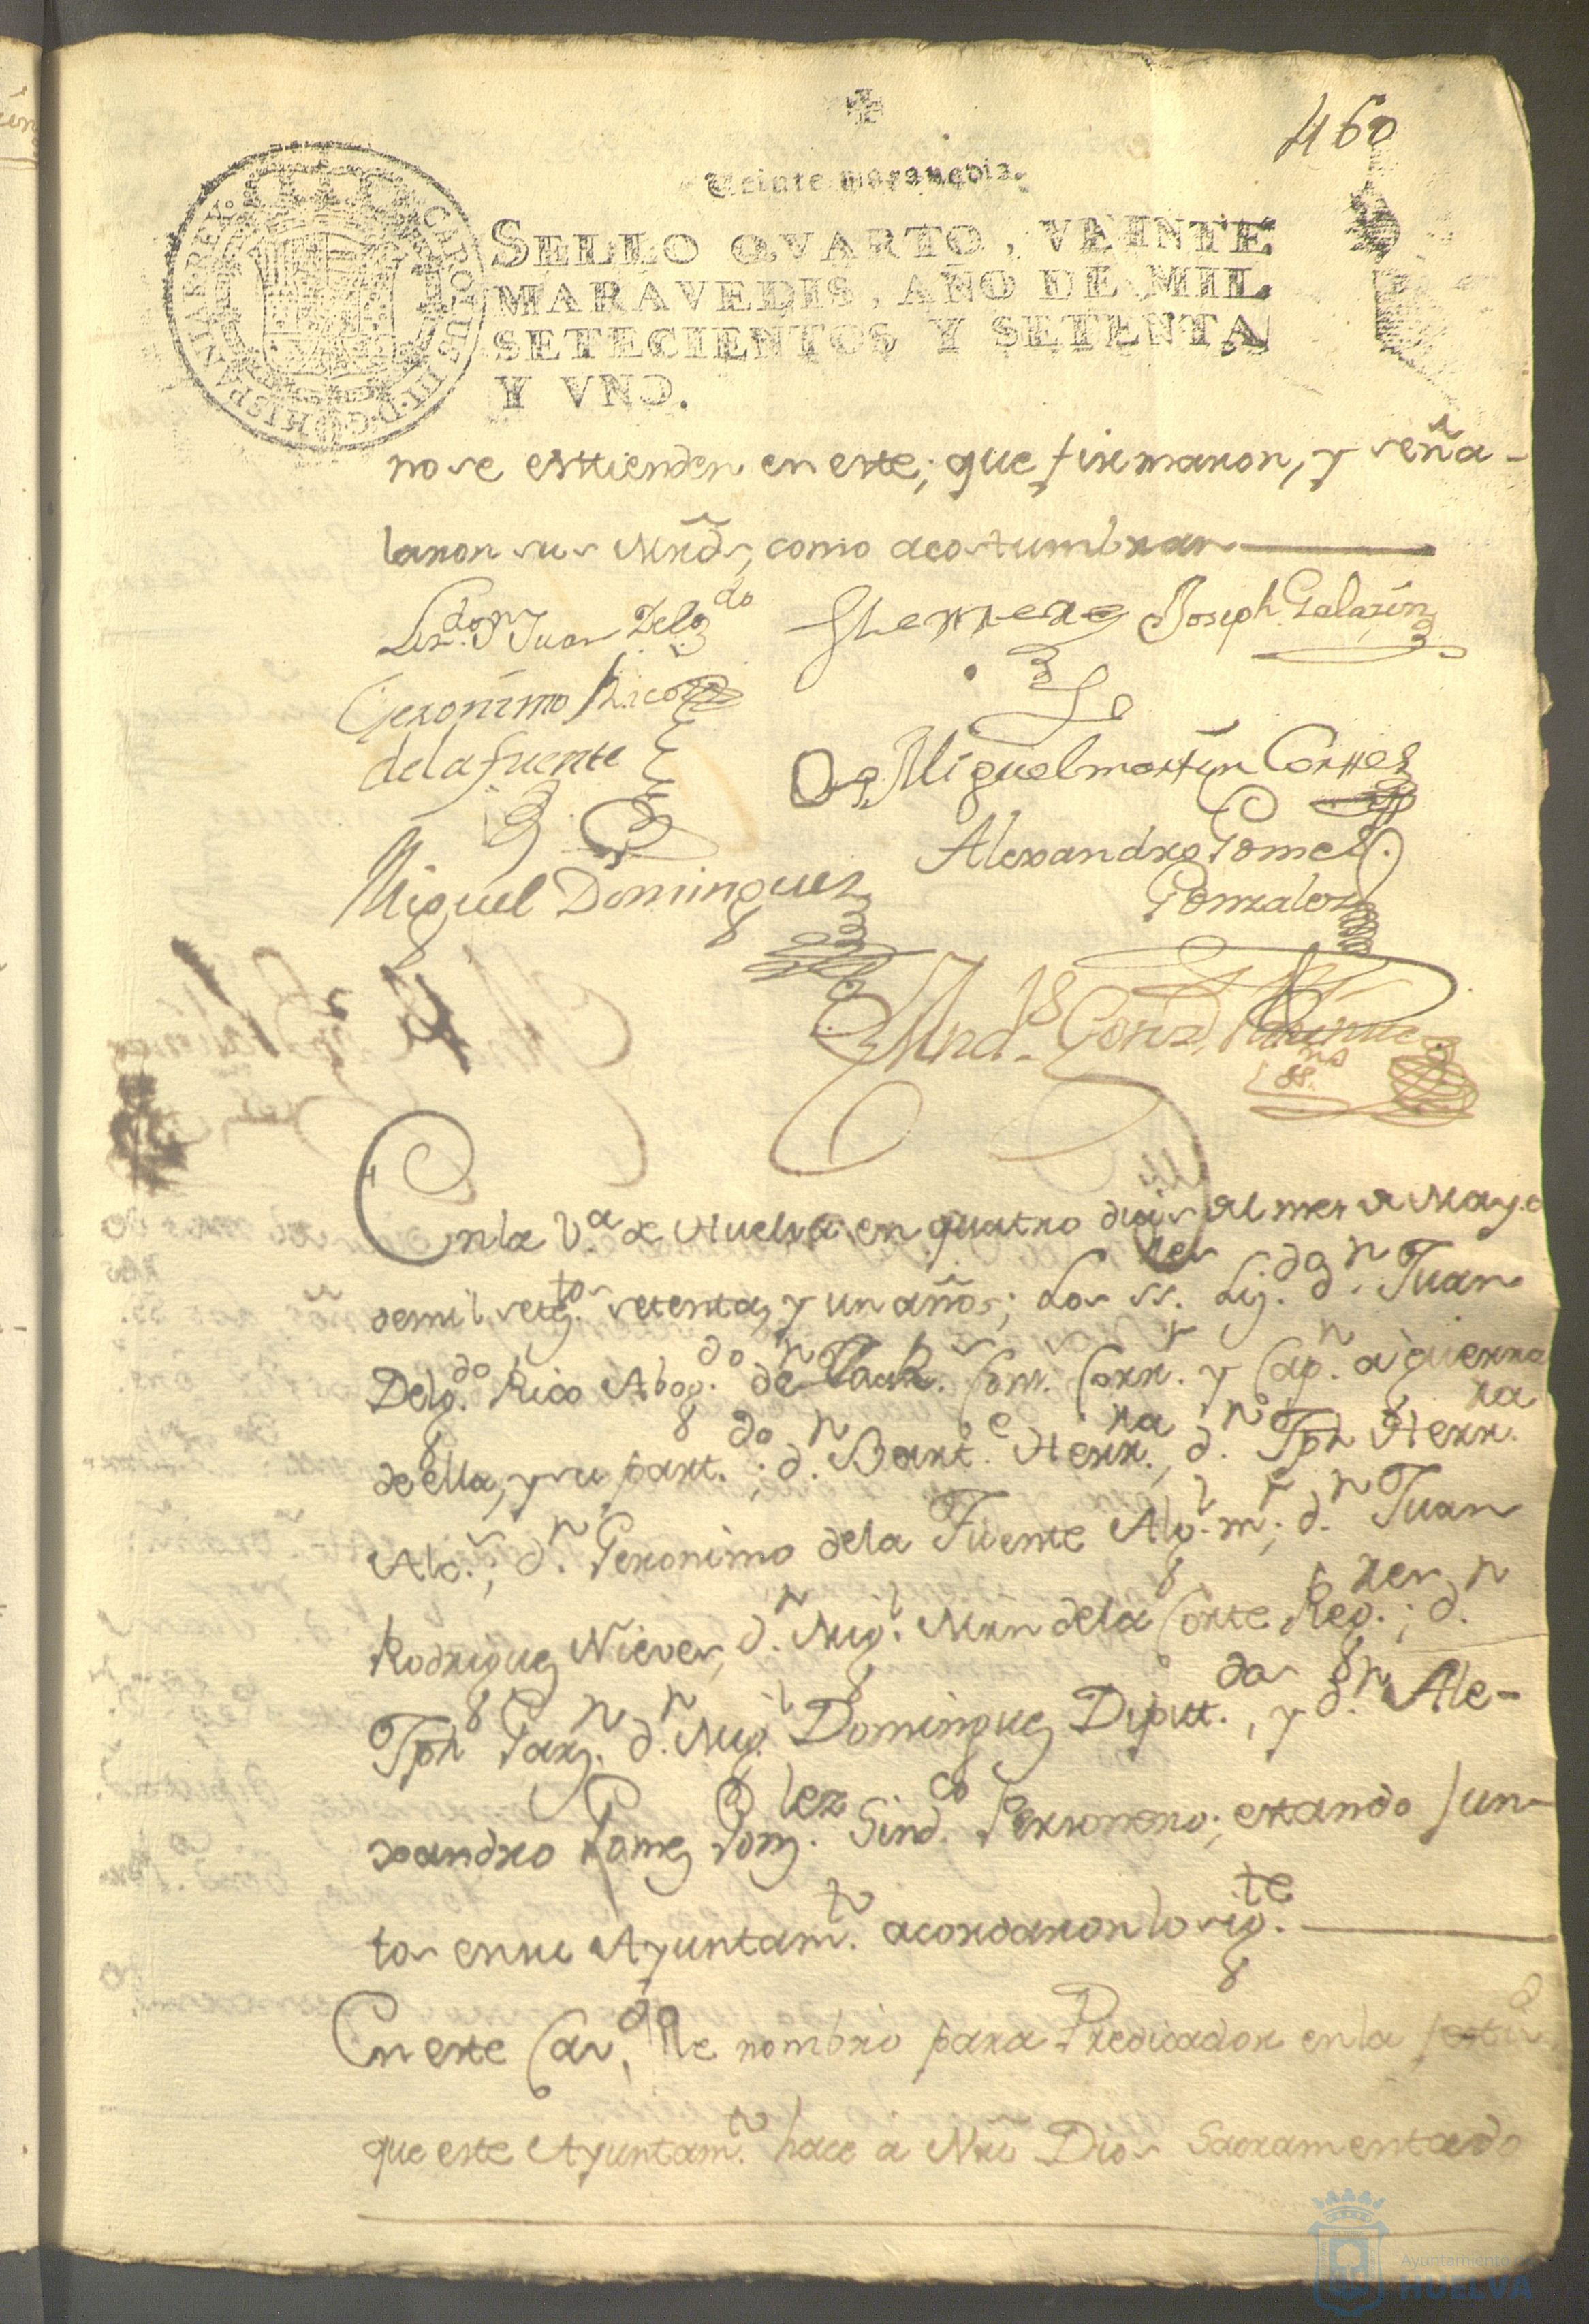 460
Veinte maravedis.
SELLO QVARTO, VEINTE
MARAVEDIS, AÑO DE MIL
SETECIENTOS Y SETENTA
Y VNO.
CAROLUS III D.G. HISPANIAR. REX
no se esttienden en este; que firmaron, y seña-
laron sus Mrds, como acostumbran
Lizdo. Dn Juan Delgdo
Herrera
Joseph Galazin
Geronimo Rico
de la fuente
Miguel martin Cortes
Alexandro Gomes
Gonzalez
Miguel Domingues
Andrs Gonz
En la Va de Huelva en quatro dias del mes de Mayo
de mil setestos setenta, y un años; Los SS. Lizdo dn Juan
Delgdo Rico Abogdo de los Rs Cons. Corrr y Capn a guerra
de ella, y su partdo; dn Barte Herrra, dn Jph Herrra
Alcs; dn Geronimo de la Fuente Algl mr; dn Juan
Rodriguez Nieves, dn Migl Mrn de la Corte Regres; dn
Jph Garzn dn Migl Dominguez Diputtdos, y dn Ale-
xandro Gomez Gonzlez Sindco Personero; estando Jun-
tos en su Ayuntamto acordaron lo sigte
En este Cavdo se nombro para Predicador en la
que este Ayuntamto hace a Nro Dios Sacramentado
Ayuntamiento
HUELVA